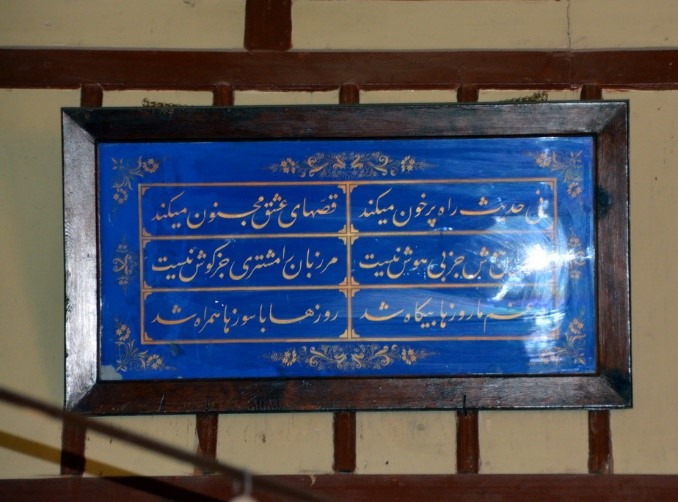 نی حدیث راه پرخون میکند قصهای عشق مجنون میکند
هوش جز بی هوش نیست مر زبان را مشتری جز گوش نیست
ما روزها بیگاه شد روزها با سوزها همراه شد